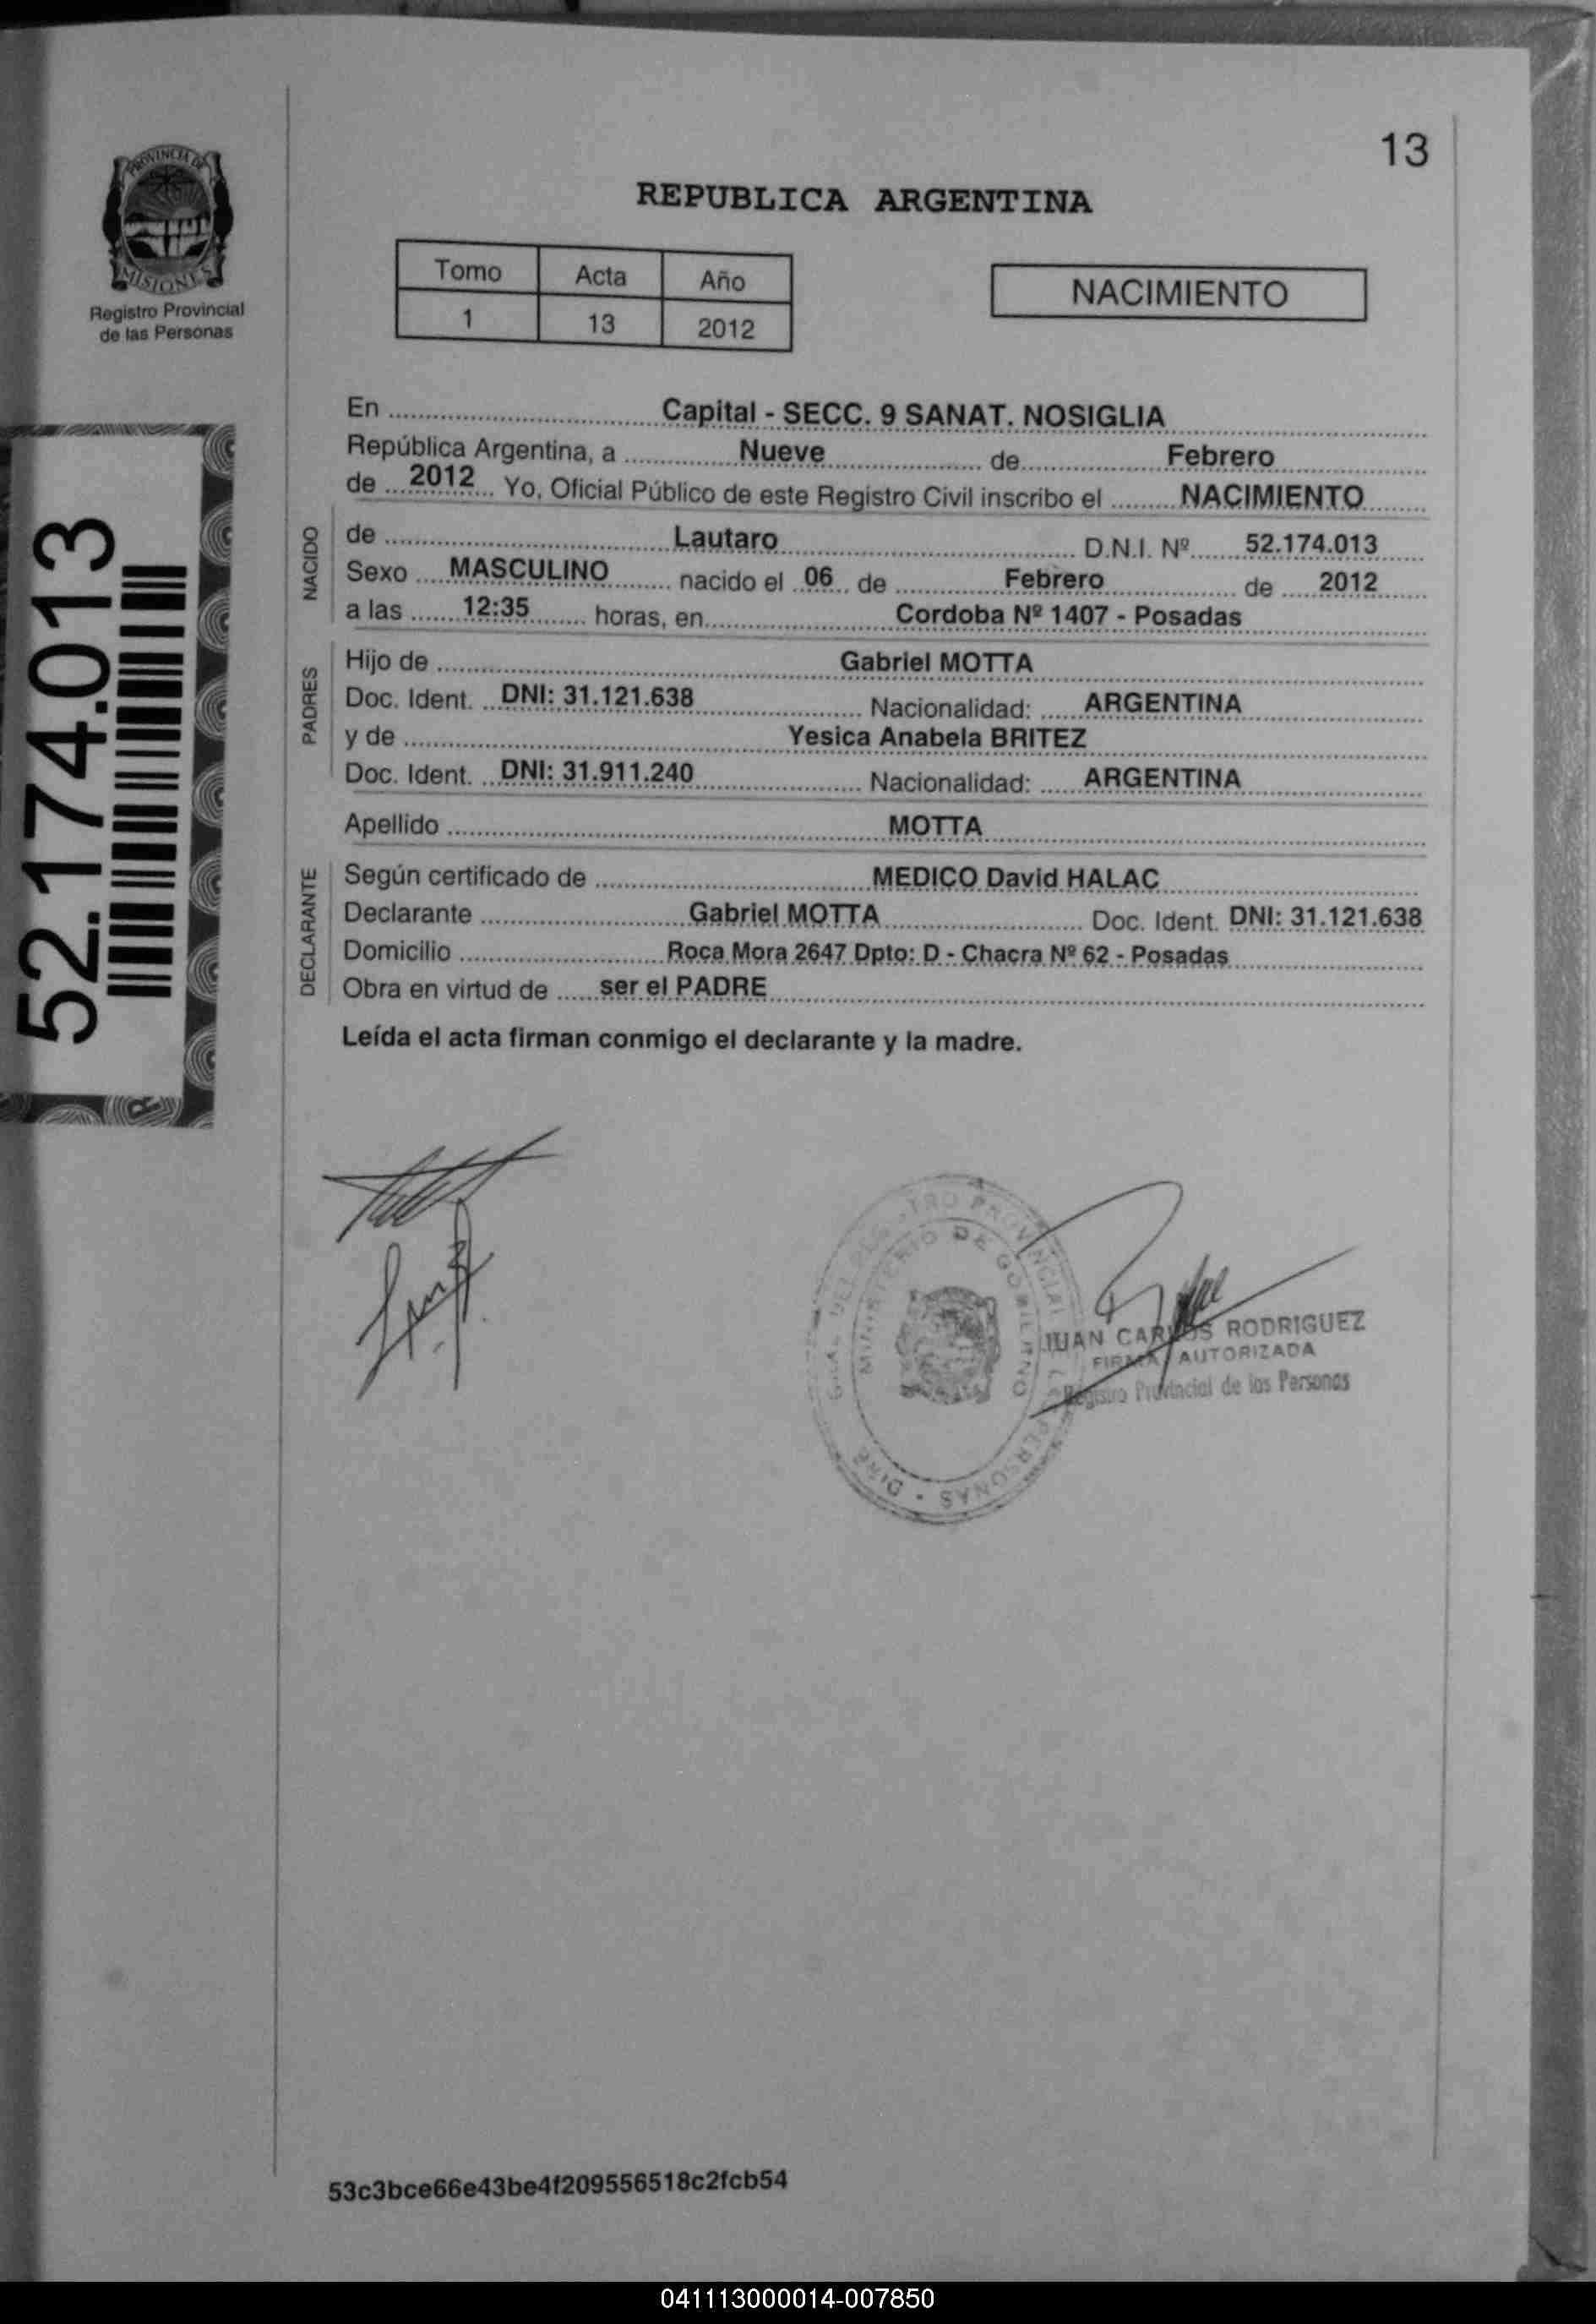 13
PROVINCIA DE
MISIONES
Registro Provincial
de las Personas
REPUBLICA ARGENTINA
Tomo Acta Año
1 13 2012
NACIMIENTO
52.174.013
En Capital - SECC. 9 SANAT. NOSIGLIA
República Argentina, a Nueve de Febrero
de 2012 Yo, Oficial Público de este Registro Civil inscribo el NACIMIENTO
NACIDO
de Lautaro D.N.I. Nº 52.174.013
Sexo MASCULINO nacido el 06 de Febrero de 2012
a las 12:35 horas, en Cordoba Nº 1407 - Posadas
PADRES
Hijo de Gabriel MOTTA
Doc. Ident. DNI: 31.121.638 Nacionalidad: ARGENTINA
y de Yesica Anabela BRITEZ
Doc. Ident. DNI: 31.911.240 Nacionalidad: ARGENTINA
Apellido MOTTA
DECLARANTE
Según certificado de MEDICO David HALAC
Declarante Gabriel MOTTA Doc. Ident. DNI: 31.121.638
Domicilio Roca Mora 2647 Dpto: D - Chacra Nº 62 - Posadas
Obra en virtud de ser el PADRE
Leída el acta firman conmigo el declarante y la madre.
PROVINCIAL PERSONAS
MINISTERIO DE GOBIERNO
JUAN CARLOS RODRIGUEZ
FIRMA AUTORIZADA
Registro Provincial de las Personas
53c3bce66e43be4f209556518c2fcb54
041113000014-007850